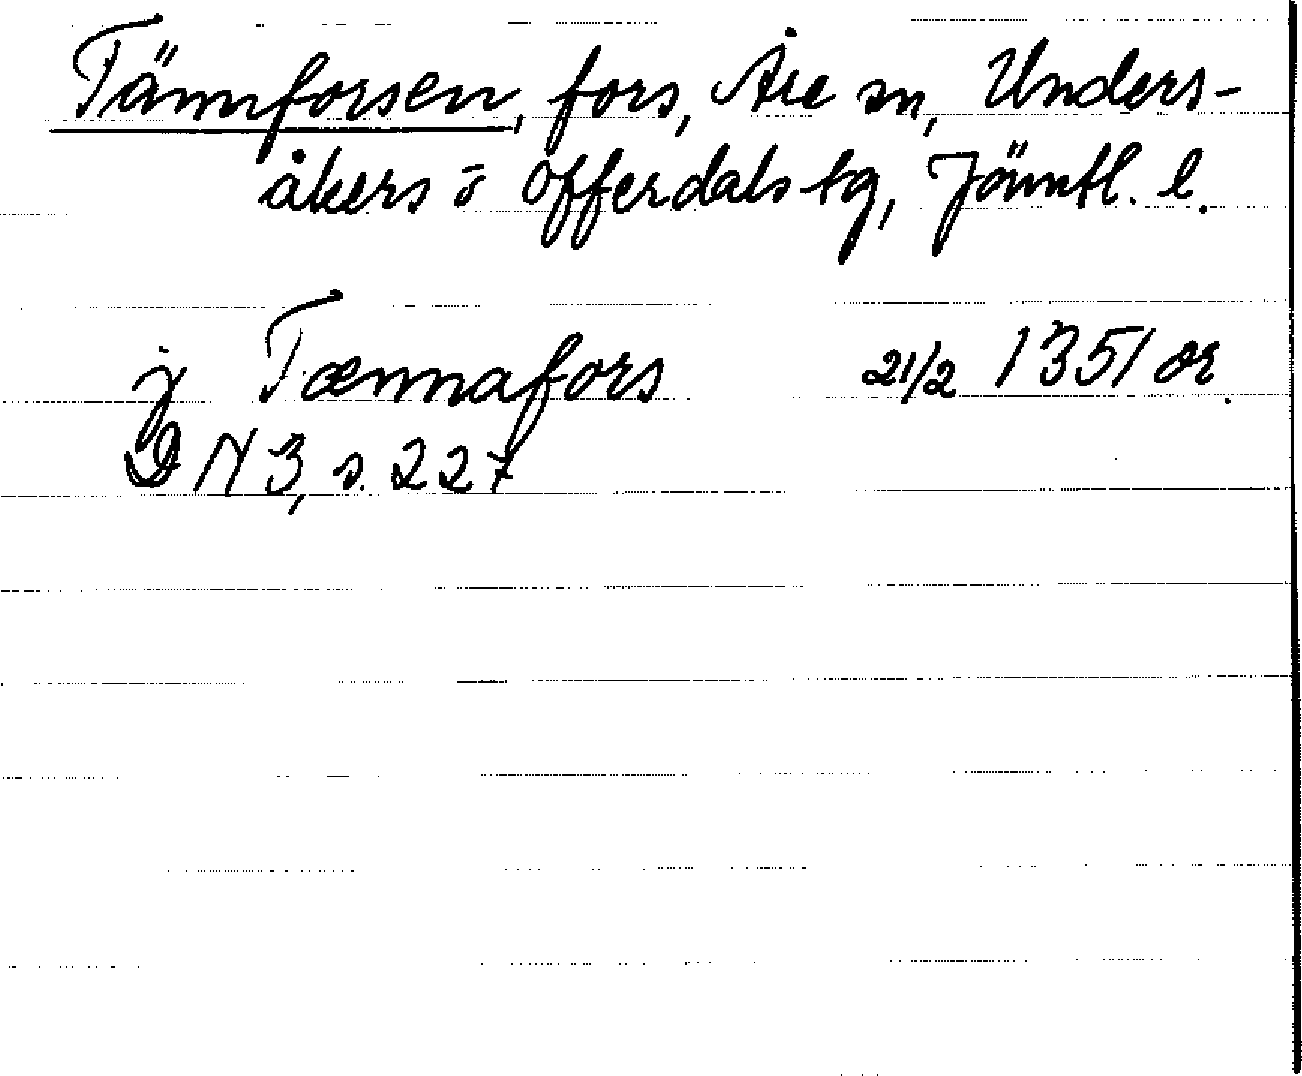 Tännforsen, fors, Åre sn, Unders-
åkers o Offerdals tg, Jämtl. l.
j Tænnafors 21/2 1351 or.
DN 3, s. 227